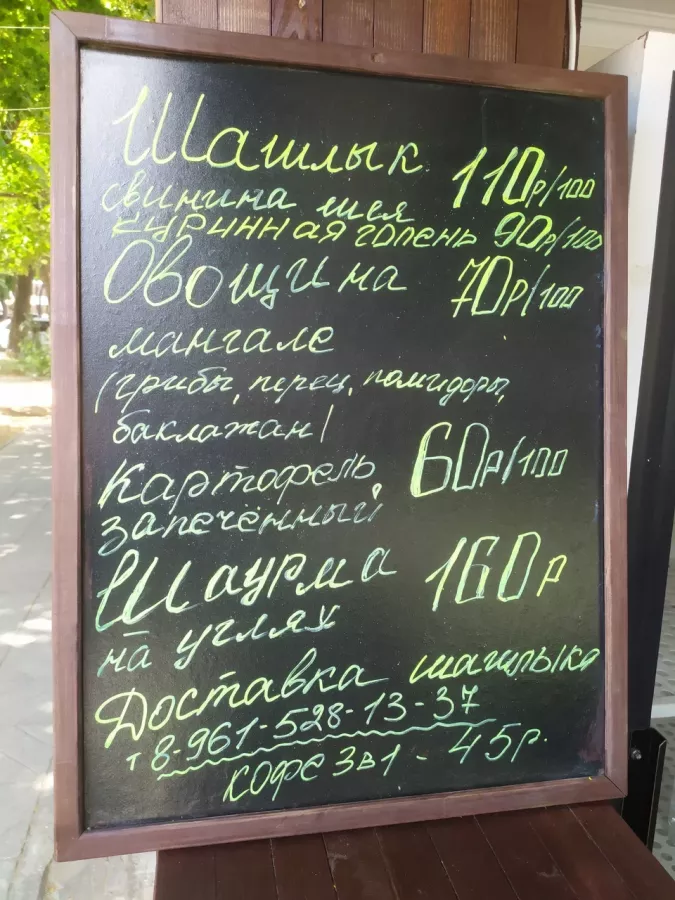 Шашлык 110р/100
свинина шея
куриННая голень 90р/100
Овощи на 70р/100
мангале
(грибы, перец, помидоры,
баклажан)
Картофель 60р/100
запечённый
Шаурма 160р
на углях
Доставка шашлыка
т 8-961-528-13-37
кофе 3в1 - 45р.